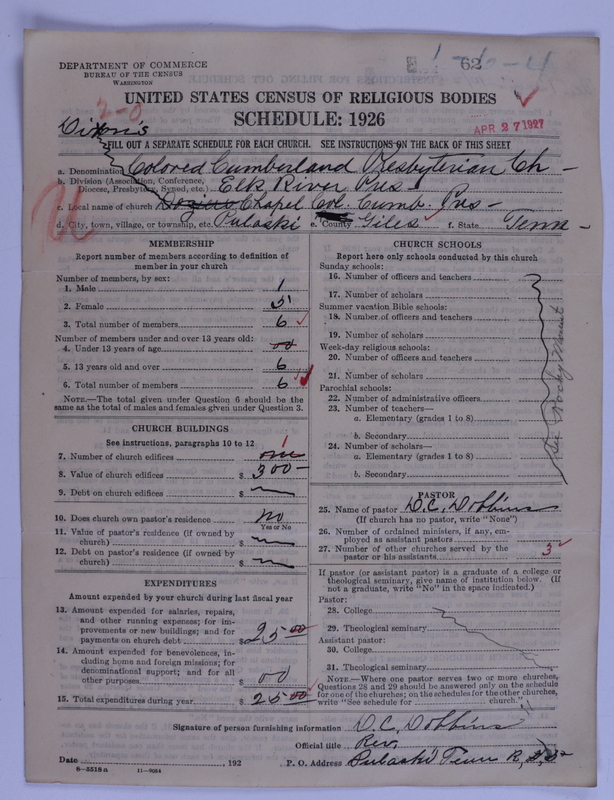 DEPARTMENT OF COMMERCE
BUREAU OF THE CENSUS
WASHINGTON
62
UNITED STATES CENSUS OF RELIGIOUS BODIES
SCHEDULE: 1926
APR 27 1927
2-0
Dixon's
FILL OUT A SEPARATE SCHEDULE FOR EACH CHURCH. SEE INSTRUCTIONS ON THE BACK OF THIS SHEET
a. Denomination Colored Cumberland Presbyterian Ch-
b. Division (Association, Conference, Diocese, Presbytery, Synod, etc.) Elk River Pres.
c. Local name of church Chapel Col. Cumb. Pres-
d. City, town, village, or township, etc. Pulaski e. County Giles f. State Tenn-
MEMBERSHIP
Report number of members according to definition of
member in your church
Number of members, by sex:
1. Male 1
2. Female 5
3. Total number of members 6
Number of members under and over 13 years old:
4. Under 13 years of age 00
5. 13 years old and over 6
6. Total number of members 6
NOTE.—The total given under Question 6 should be
same as the total of males and females given under Question 3.
CHURCH BUILDINGS
See instructions, paragraphs 10 to 12
7. Number of church edifices one 1
8. Value of church edifices $ 300-
9. Debt on church edifices $
10. Does church own pastor's residence No
Yes or No
11. Value of pastor's residence (if owned by
church) $
12. Debt on pastor's residence (if owned by
church) $
EXPENDITURES
Amount expended by your church during last fiscal year
13. Amount expended for salaries, repairs,
and other running expenses; for im-
provements or new buildings; and for
payments on church debt $ 25 00
14. Amount expended for benevolences, in-
cluding home and foreign missions; for
denominational support; and for all
other purposes $ 00
15. Total expenditures during year $ 25 00
CHURCH SCHOOLS
Report here only schools conducted by this church
Sunday schools:
16. Number of officers and teachers
17. Number of scholars
Summer vacation Bible schools:
18. Number of officers and teachers
19. Number of scholars
Week-day religious schools:
20. Number of officers and teachers
21. Number of scholars
Parochial schools:
22. Number of administrative officers
23. Number of teachers—
a. Elementary (grades 1 to 8)
b. Secondary
24. Number of scholars—
a. Elementary (grades 1 to 8)
b. Secondary
See Rocky Mount
PASTOR
25. Name of pastor D.C. Dobbins
(If church has no pastor, write "None")
26. Number of ordained ministers, if any, em-
ployed as assistant pastors
27. Number of other churches served by the
pastor or his assistants 3
If pastor (or assistant pastor) is a graduate of a college or
theological seminary, give name of institution below. (If
not a graduate, write "No" in the space indicated.)
Pastor:
28. College
29. Theological seminary
Assistant pastor:
30. College
31. Theological seminary
NOTE.—Where one pastor serves two or more churches,
Questions 28 and 29 should be answered only on the schedule
for one of the churches; on the schedules for the other churches,
write "See schedule for church."
Signature of person furnishing information D.C. Dobbins
Official title Rev.
Date 192 P. O. Address Pulaski Tenn R, 
8-5518a 11-8054